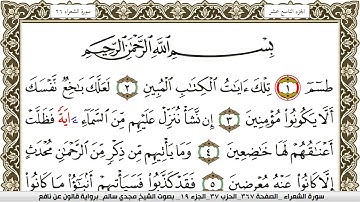 الجزء التاسع عشر
سورة الشعراء ٢٦
بِسْمِ اللَّهِ الرَّحْمَٰنِ الرَّحِيمِ
طسٓمٓ ١ تِلْكَ ءَايَٰتُ الْكِتَٰبِ الْمُبِينِ ٢ لَعَلَّكَ بَٰخِعٌ نَّفْسَكَ
أَلَّا يَكُونُوا مُؤْمِنِينَ ٣ إِن نَّشَأْ نُنَزِّلْ عَلَيْهِم مِّنَ السَّمَآءِ ايَةً فَظَلَّتْ
أَعْنَٰقُهُمْ لَهَا خَٰضِعِينَ ٤ وَمَا يَأْتِيهِم مِّن ذِكْرٍ مِّنَ الرَّحْمَٰنِ مُحْدَثٍ
إِلَّا كَانُوا عَنْهُ مُعْرِضِينَ ٥ فَقَدْ كَذَّبُوا فَسَيَأْتِيهِمْ أَنۢبَٰٓؤُا مَا كَانُوا
سورة الشعراء _الصفحة ٣٦٧ _الحزب ٣٧ _الجزء ١٩ _ بصوت الشيخ مجدي سالم _برواية قالون عن نافع